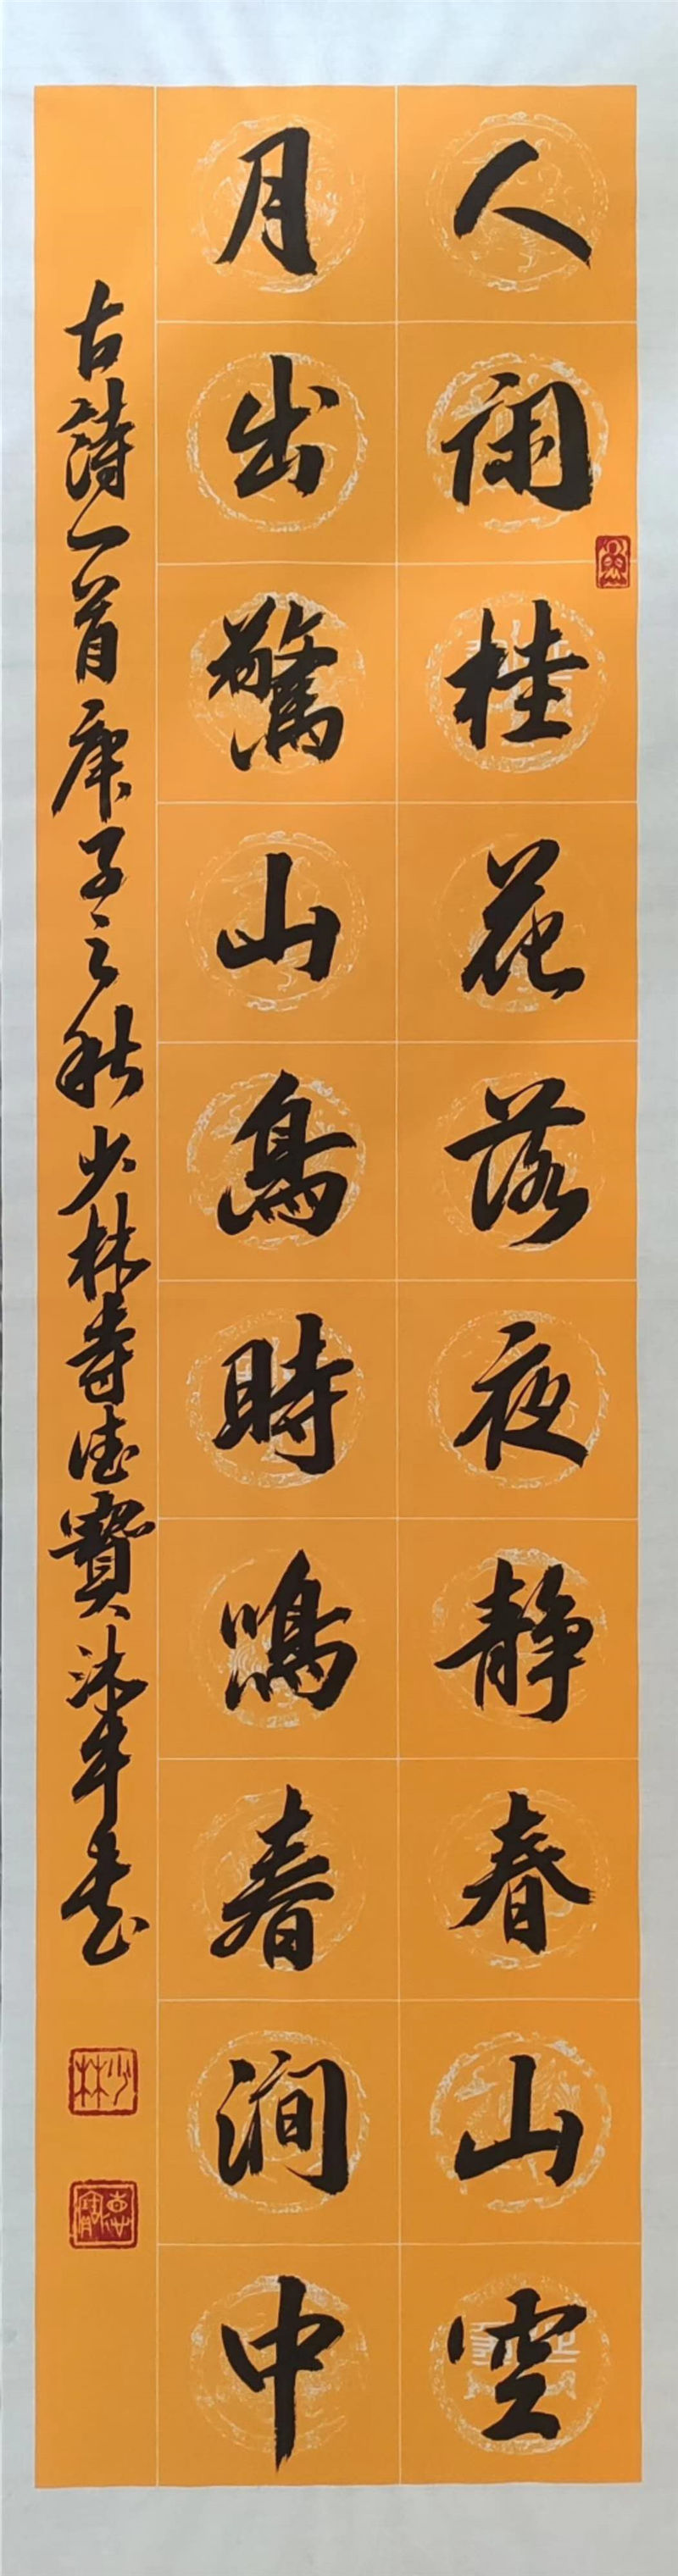 人闲桂花落夜静春山空
月出驚山鳥時鳴春澗中
古詩一首庚子之秋少林寺德寶沐手書
少林